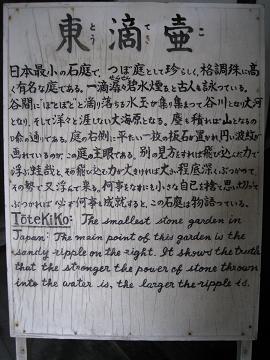 とう てき こ
東滴壷
日本最小の石庭で、つぼ庭として珍らしく、格調殊に高
く有名な庭である。一滴落ち碧水煌ると古人も詠っている。
谷間に"ぽとぽと"と滴り落ちる水玉が集り集まって谷川となり大河
となり、そして洋々と涯しない大海原となる。塵も積れば山となるの
喩の通りである。庭の右側に平たい一枚の板石が置かれ円い波紋が
画れているのがこの庭の主眼である。別の見方とすれば飛び込んだ力で
浮ぶ蛙哉とその飛び込む力が大きければ大い程底深くぶつかって
その勢で又浮んで来る。何事をなすにも小さな自己を捨て思い切って
ぶつかれば必ず何事も成就すると、この石庭は物語っている。
TōteKiKo: The smallest stone garden in
Japan: The main point of this garden is the
sandy-ripple on the right. It shows the truth
that the stronger the power of stone thrown
into the water is, the larger the ripple is.